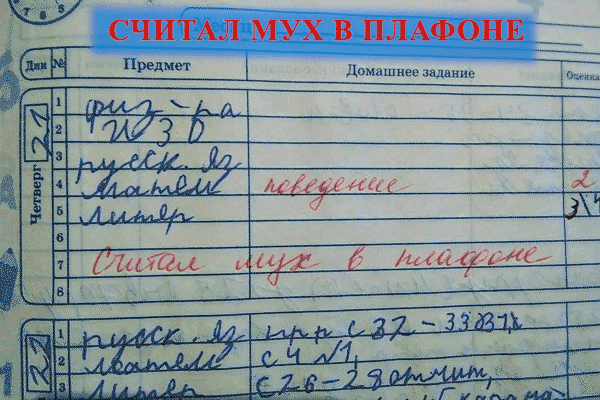 СЧИТАЛ МУХ В ПЛАФОНЕ
Дни № Предмет Домашнее задание Оценка
Четверг 21
1 физ-ра
2 ИЗО
3 русск. яз
4 матем поведение 2
5 литер 3\4
6
7 Считал мух в плафоне
8
22
1 русск. яз
2 матем с 4 №1,
3 литер с 26-28